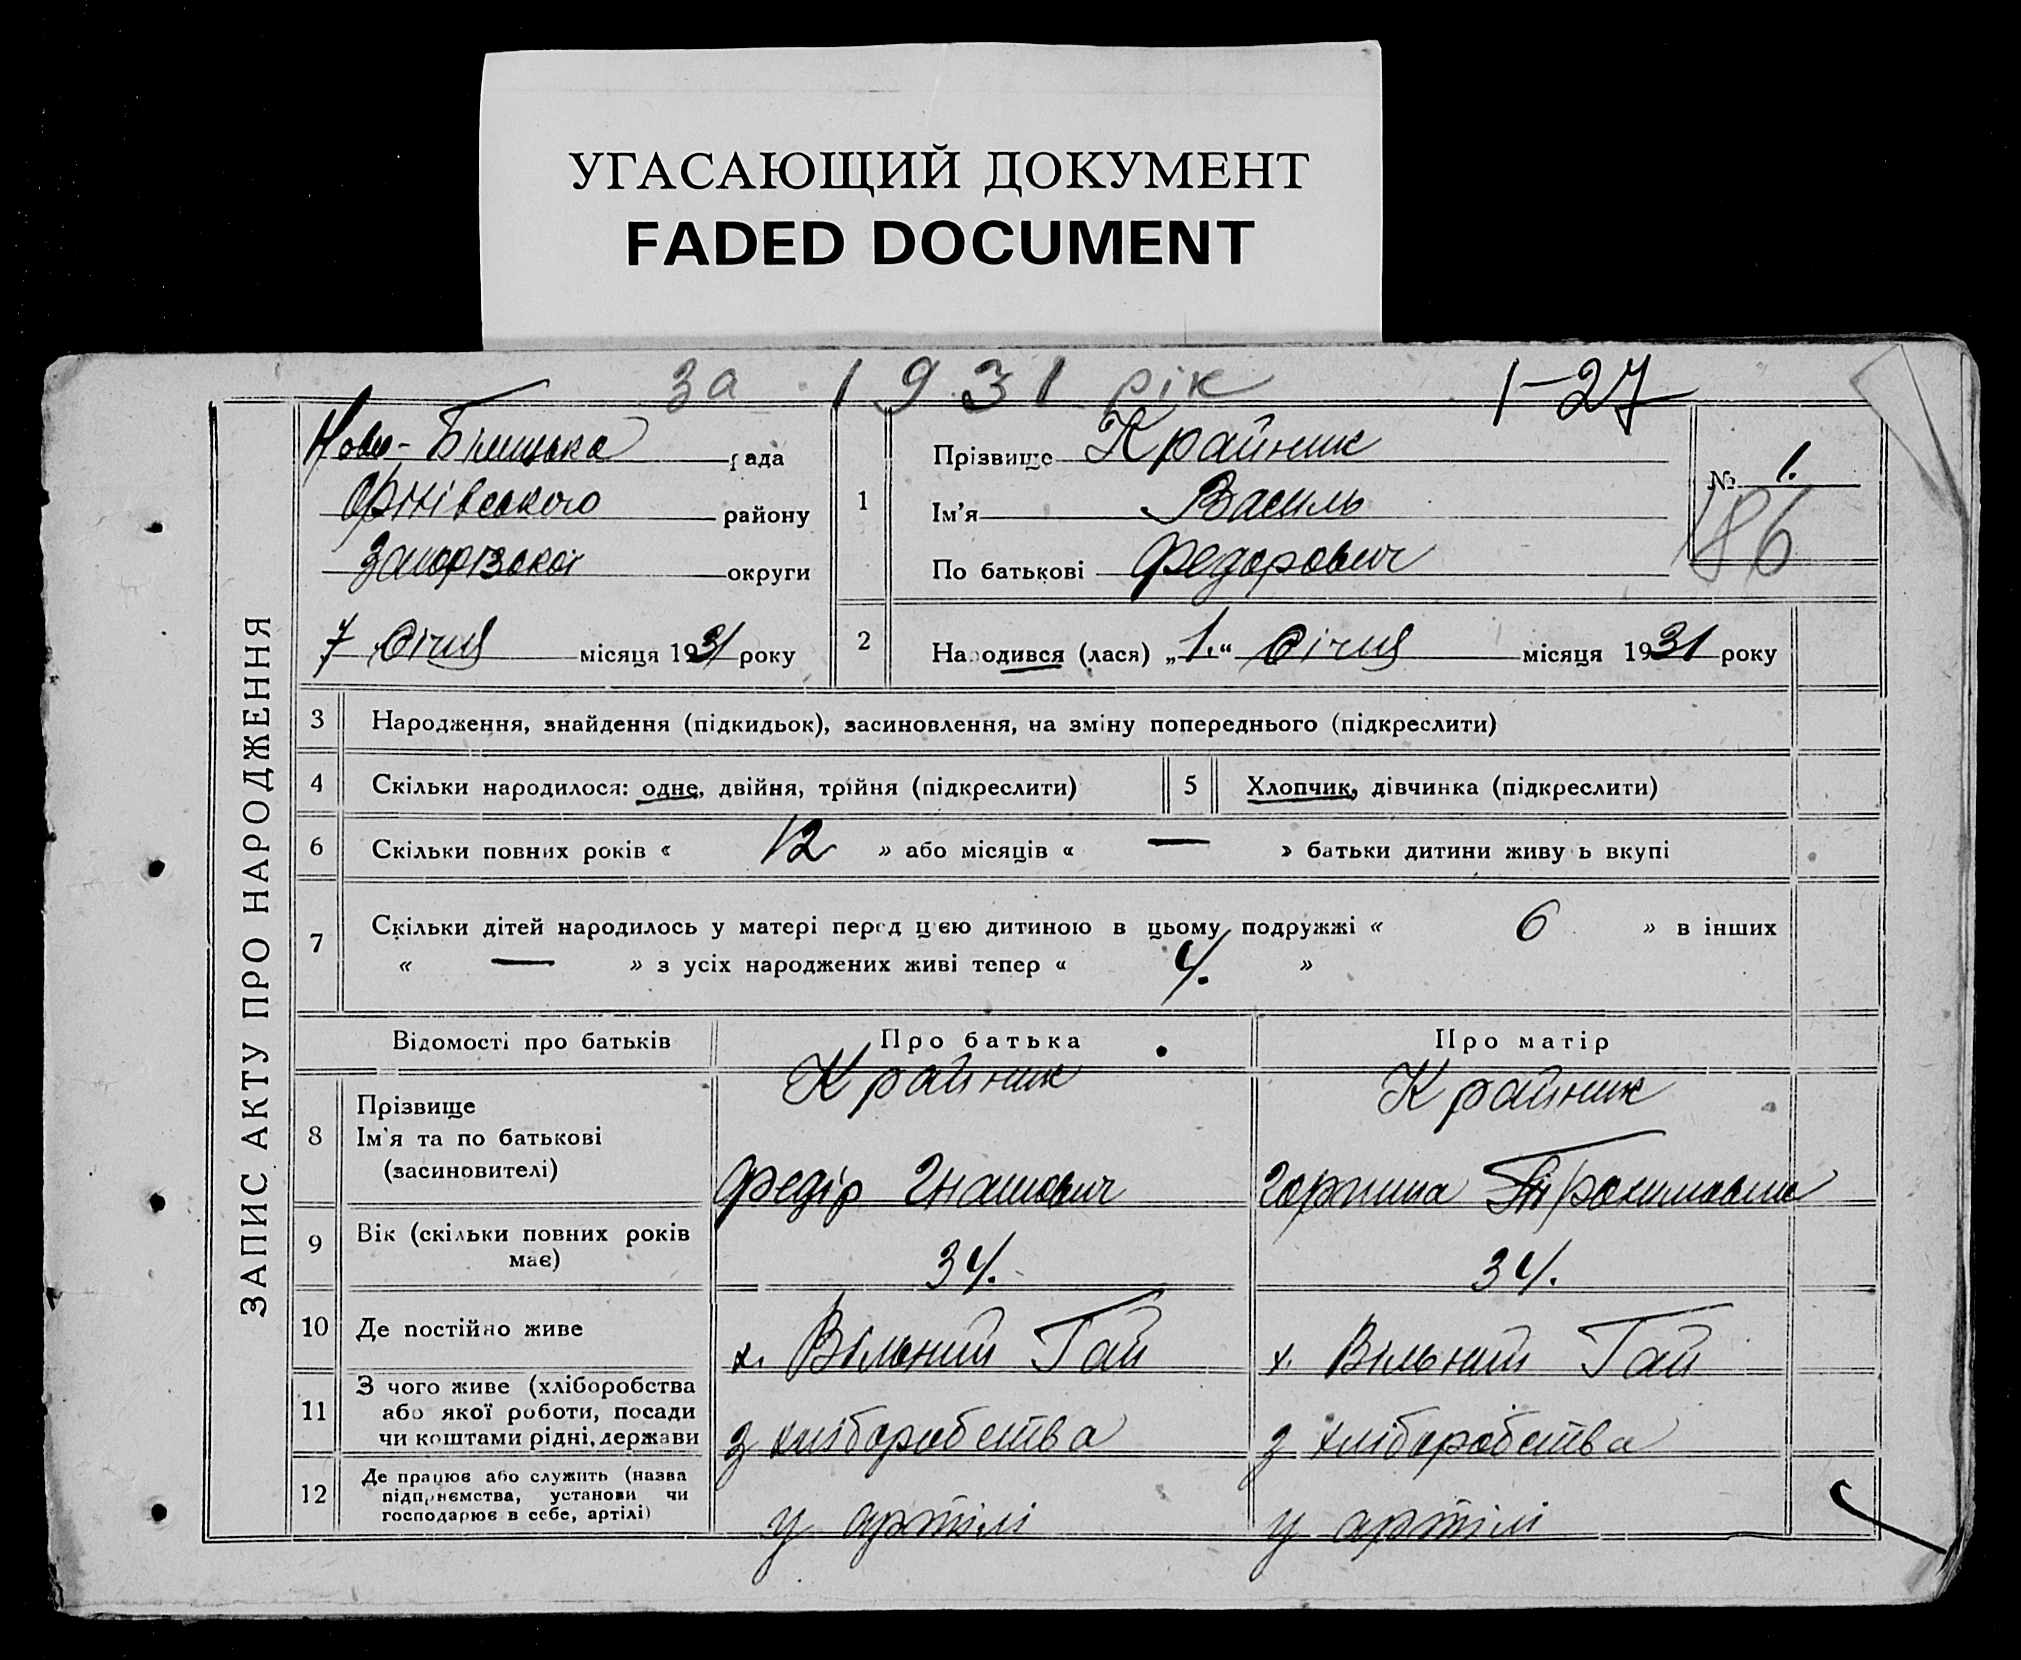 УГАСАЮЩИЙ ДОКУМЕНТ
FADED DOCUMENT
за 1931 рік 1-27
ЗАПИС АКТУ ПРО НАРОДЖЕННЯ
рада
району
округи
7 січня місяця 1931 року
1
Прізвище Крайник
Ім'я Василь
По батькові Федорович
№ 1.
186
2 Народився (лася) „1.“ січня місяця 1931 року
3 Народження, знайдення (підкидьок), засиновлення, на зміну попереднього (підкреслити)
4 Скільки народилося: одне, двійня, трійня (підкреслити) 5 Хлопчик, дівчинка (підкреслити)
6 Скільки повних років « 12 » або місяців « — » батьки дитини живуть вкупі
7 Скільки дітей народилось у матері перед цією дитиною в цьому подружжі « 6 » в інших
« — » з усіх народжених живі тепер « 4. »
Відомості про батьків Про батька Про матір
8 Прізвище Крайник Крайник
Ім'я та по батькові
(засиновителі) Федір Гнатович Горпина
9 Вік (скільки повних років
має) 34. 34.
10 Де постійно живе х. Вільний Гай х. Вільний Гай
11 З чого живе (хліборобства
або якої роботи, посади
чи коштами рідні, держави з хліборобства з хліборобства
12 Де працює або служить (назва
підприємства, установи чи
господарює в себе, артілі) у артілі у артілі